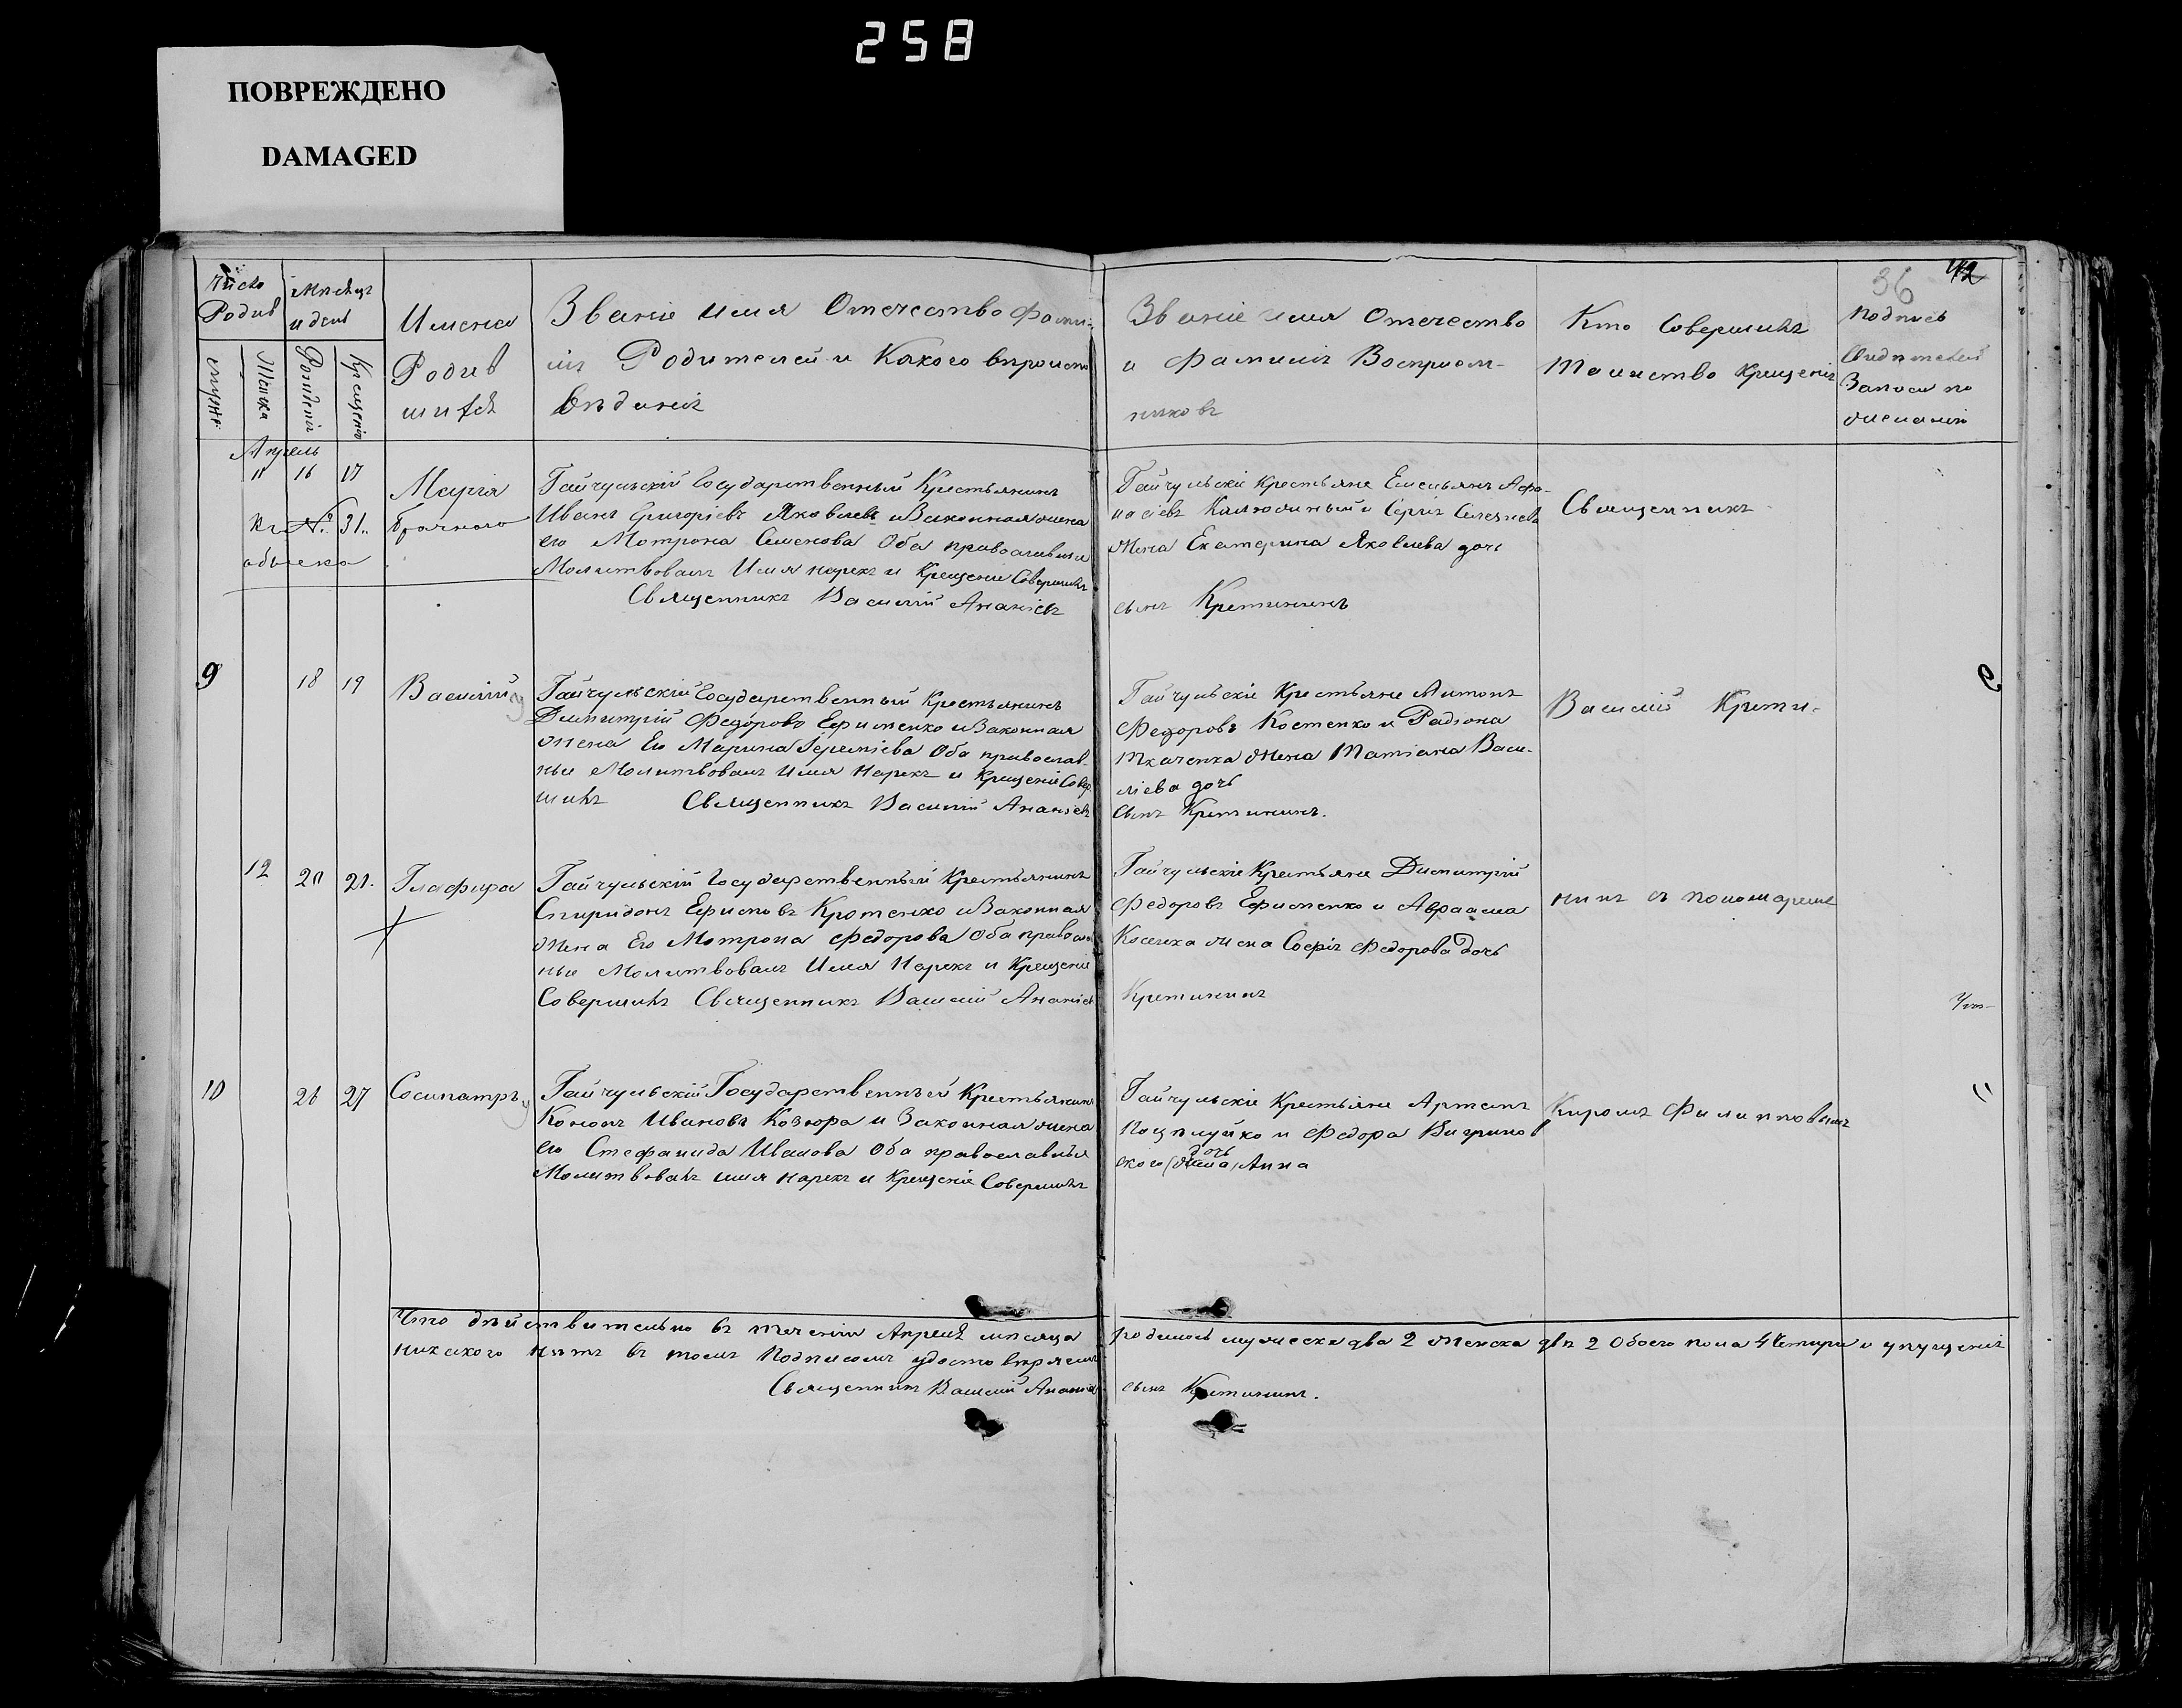 258
ПОВРЕЖДЕНО
DAMAGED
36 42
Число Родив
Мѣсяцъ и день
Имена Родив шихся
Званіе Имя Отечество Фами-
лія Родителей и Какого вѣроиспо
вѣданія
Званіе имя Отечество
и Фамилія Воспріем-
никовъ
Кто Совершилъ
Таинство Крещенія
Подпись
Свидѣтелей
Записи по
желанію
Мужск
Женска
Рожденія
Крещенія
Апрель
11 16 17
Марія
Кг № 31. брачнаго
обыска
Гайчульскій Государственный Крестьянинъ
Иванъ Григоріевъ Яковлевъ и Законная жена
его Мотрона Семенова Оба православные
Молитвовалъ Имя нарекъ и Крещеніе Совершилъ
Священникъ Василій Ананіев
Гайчульскіе Крестьяне Емельянъ Афо-
насіевъ и Сергія
жена Екатерина Яковлева дочь
сынъ Кретининъ
Священникъ
9 18 19
Василій
Гайчульскій Государственный Крестьянинъ
Димитрій Федоровъ Ефименко и Законная
жена Его Марина Іереміева Оба православ-
ные Молитвовалъ Имя Нарекъ и Крещеніе Совер
шилъ Священникъ Василій Ананіев
Гайчульскіе Крестьяне Антонъ
Федоровъ Костенко и Радіона
Ткаченка жена Татіана Васи-
ліева дочь
сынъ Кретининъ.
Василій Крети-
12 20 21.
Глафира
Гайчульскій Государственный Крестьянинъ
Спиридонъ Ефимовъ Кротенко и Законная
жена Его Мотрона Федорова Оба правосла
ные Молитвовалъ Имя Нарекъ и Крещеніе
Совершилъ Священникъ Василій Ананіев
Гайчульскіе Крестьяне Димитрій
Федоровъ Ефименко и Авраама
Косенка жена Софія Федорова Дочь
Кретининъ
нинъ съ пономаремъ
10 26 27
Сосипатръ
Гайчульскій Государственный Крестьянинъ
Кононъ Ивановъ Козюра и Законная жена
его Стефанида Иванова Оба православные
Молитвовалъ имя нарекъ и Крещеніе Совершилъ
Гайчульскіе Крестьяне Артемъ
Поцилуйко и Федора
ского (жена) дочь Анна
Киромъ Филипповымъ
Что дѣйствительно въ теченіи Апреля мѣсяца родилось мужеска два 2 женска двѣ 2 Обоего пола 4 Четыри и упущенія
никакого нѣтъ въ томъ Подписомъ удостовѣряемъ
Священникъ Василій Ананіев
сынъ Кретининъ.